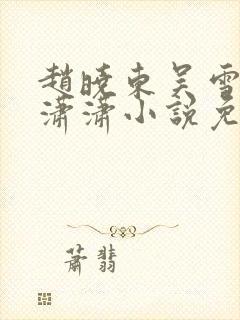 趙曉東吳雪
瀟瀟小說免
蕭翡